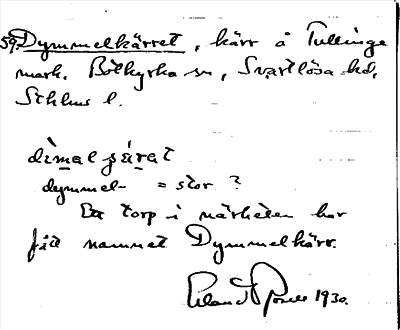 59. Dymmelkärret, kärr å Tullinge
mark. Botkyrka sn, Svartlösa hd,
Sthlms l.
dìmal ɕä̀rat
dymmel- = stor ?
Ett torp i närheten har
fått namnet Dymmelkärr.
1930.